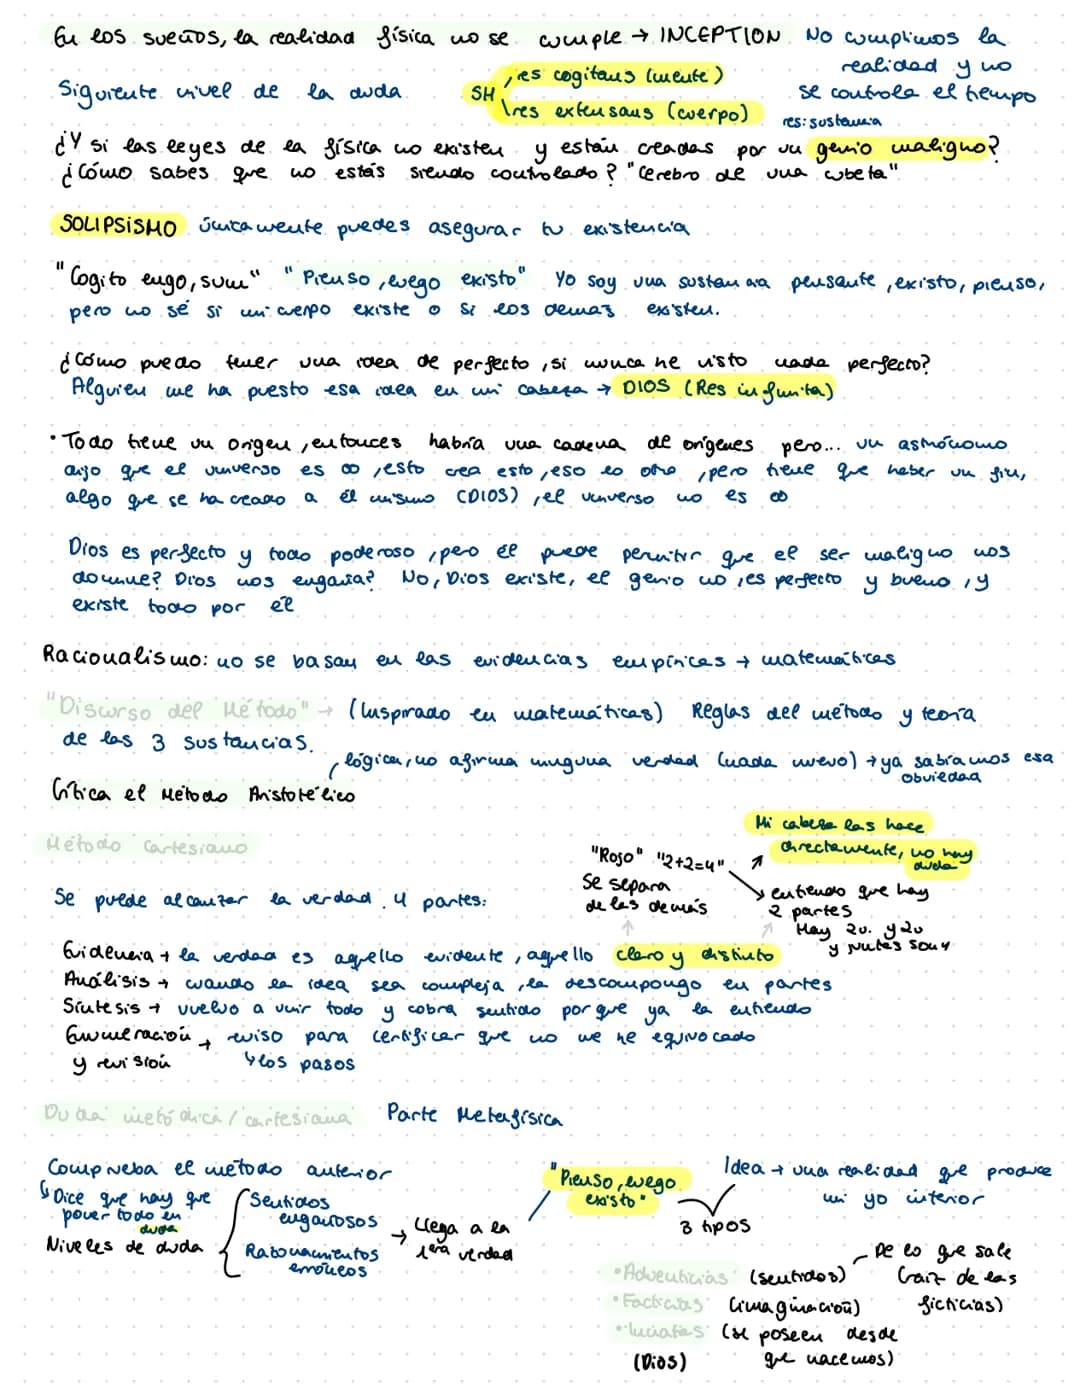 En los sueños, la realidad física no se cumple → INCEPTION. No cumplimos la
realidad y no
se controla el tiempo
Siguiente nivel de la duda
SH
res cogitans (mente)
res extensans (cuerpo)
res: sustancia
¿Y si las leyes de la física no existen y están creadas por un genio maligno?
¿Cómo sabes que no estás siendo controlado? "Cerebro de una cubeta"
SOLIPSISMO únicamente puedes asegurar tu existencia
"Cogito eugo, sum" "Pienso, luego existo" Yo soy una sustancia pensante, existo, pienso,
pero no sé si mi cuerpo existe o si los demás existen.
¿Cómo puedo tener una idea de perfecto, si nunca he visto nada perfecto?
Alguien me ha puesto esa idea en mi cabeza → DIOS (Res infinita)
• Todo tiene un origen, entonces habría una cadena de orígenes pero... un astrónomo
dijo que el universo es ∞, esto crea esto, eso lo otro, pero tiene que haber un fin,
algo que se ha creado a él mismo (DIOS), el universo no es ∞
Dios es perfecto y todo poderoso, pero él puede permitir que el ser maligno nos
domine? Dios nos engaña? No, Dios existe, el genio no, es perfecto y bueno, y
existe todo por él
Racionalismo: no se basan en las evidencias empíricas → matemáticas
"Discurso del Método" → (Inspirado en matemáticas) Reglas del método y teoría
de las 3 sustancias.
lógica, no afirma ninguna verdad (nada nuevo) → ya sabíamos esa
obviedad
Crítica el Método Aristotélico
Método Cartesiano
Mi cabeza las hace
directamente, no hay
duda
"Rojo" "2+2=4"
Se separa
de las demás
entiendo que hay
2 partes
Hay 2u. y 2u
y juntas son 4
Se puede alcanzar la verdad. 4 partes:
Evidencia → la verdad es aquello evidente, aquello claro y distinto
Análisis → cuando la idea sea compleja, la descompongo en partes
Síntesis → vuelvo a unir todo y cobra sentido porque ya la entiendo
Enumeración → reviso para certificar que no me he equivocado
y revisión
los pasos
Duda metódica / cartesiana Parte Metafísica
Comprueba el método anterior
Dice que hay que
poner todo en
duda
Niveles de duda
Sentidos
engañosos
Razonamientos
erróneos
→ Llega a la
1era verdad
"Pienso, luego
existo"
Idea → una realidad que produce
mi yo interior
3 tipos
• Adventicias (sentidos)
De lo que sale
(raíz de las
ficticias)
• Facticias (imaginación)
• Innatas (se poseen desde
que nacemos)
(Dios)